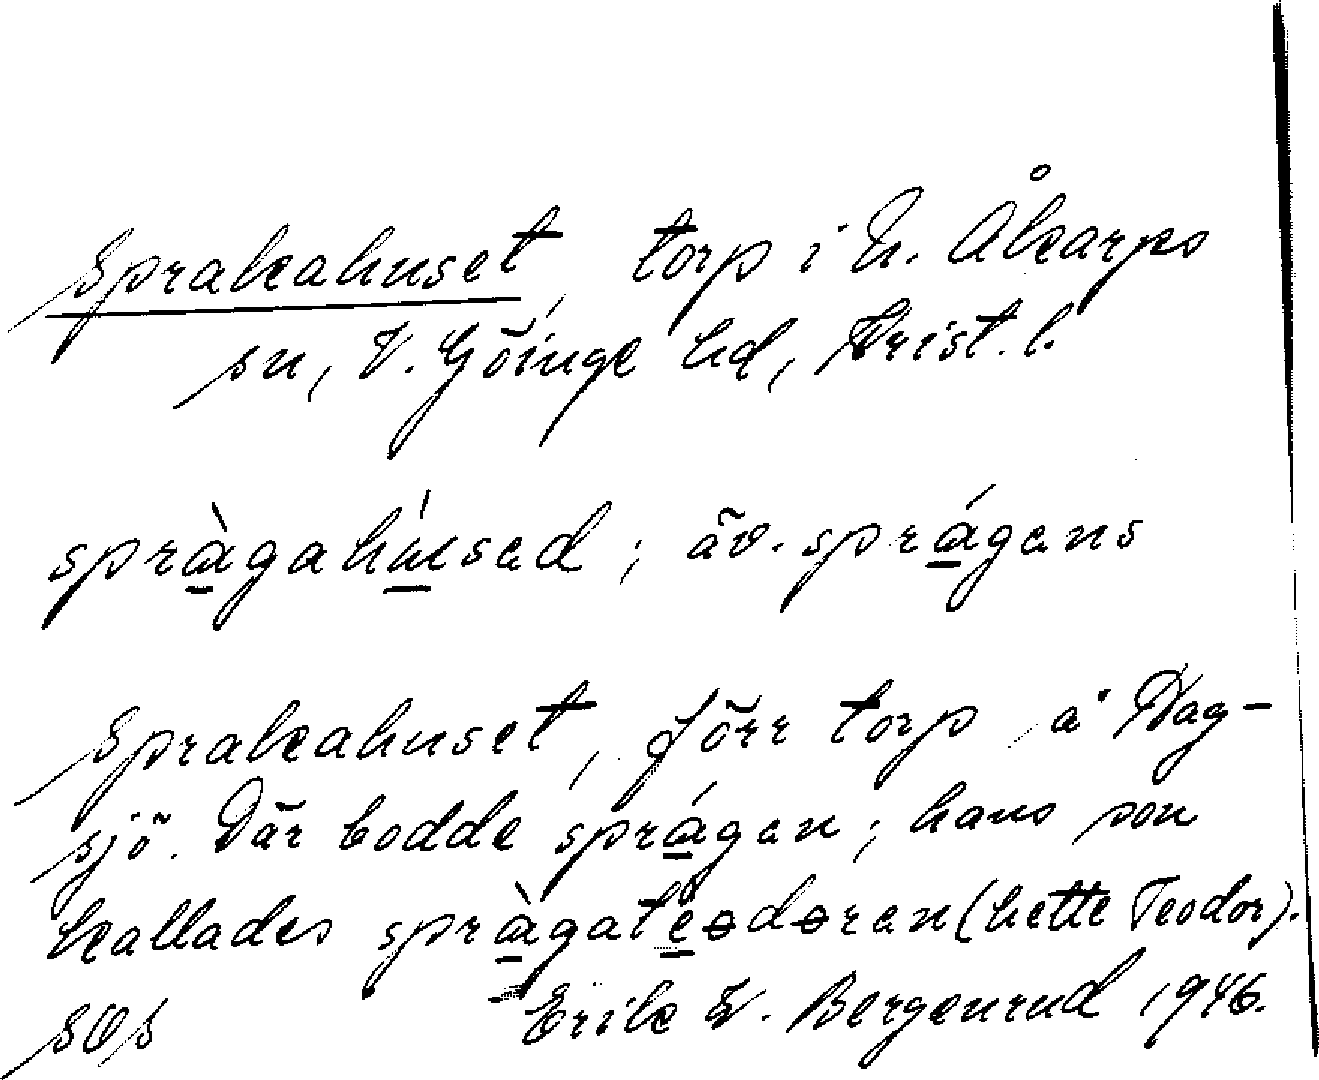 Sprakahuset, torp i N. Åkarps
sn, V. Göinge hd, Krist. l.
spràgahúsed; äv. sprágens
Sprakahuset, förr torp å Dag-
sjö. Där bodde sprágen; hans son
kallades spràgatéodoren (hette Teodor).
SOS Erik W. Bergenrud 1946.